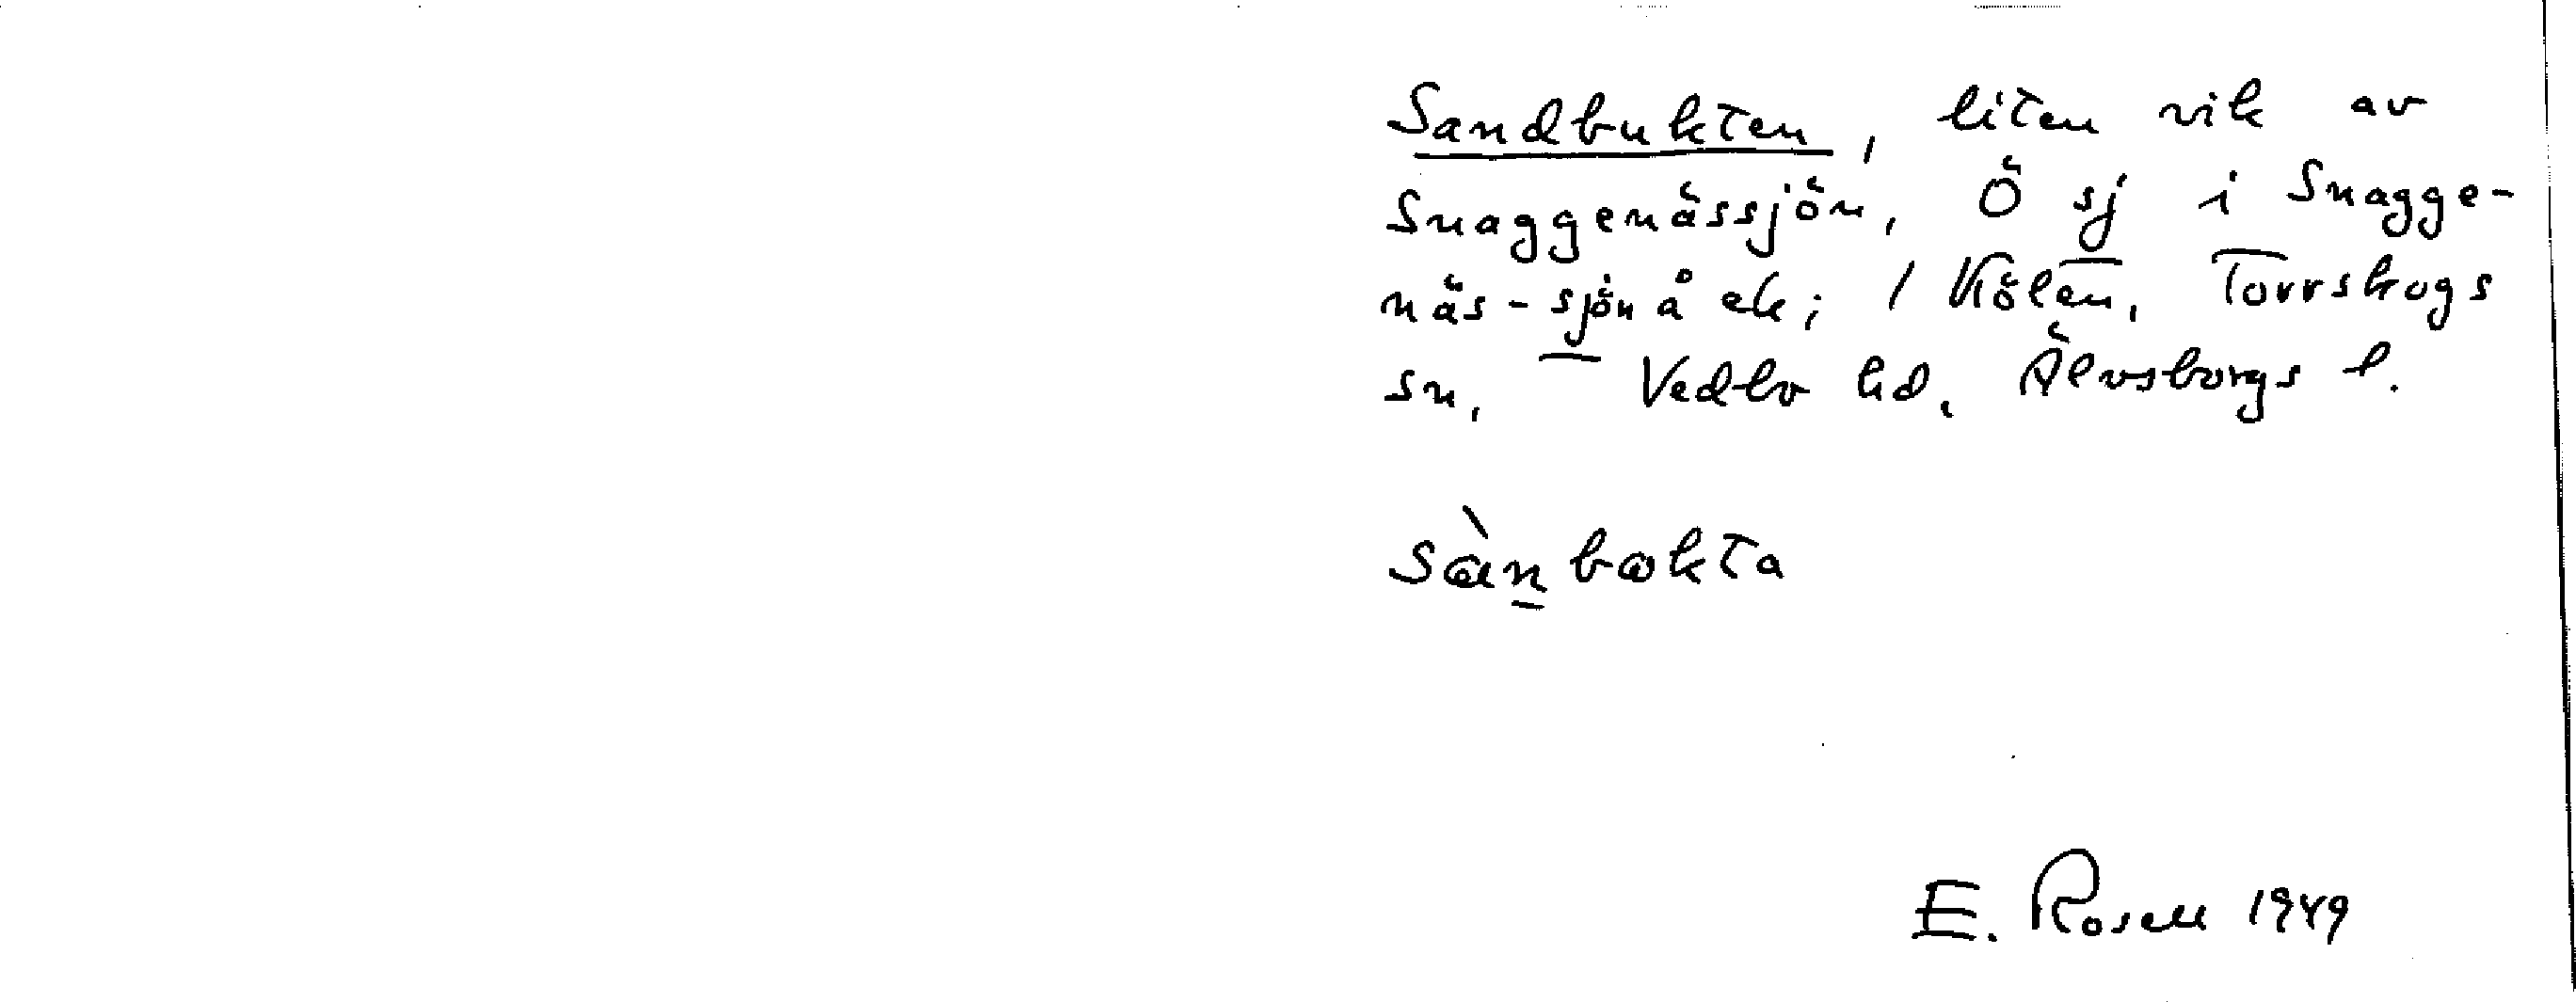 Sandbukten, liten vik av
Snaggenässjön, Ö sj i Snagge-
näs-sjön å ek; 1 Kölen, Torrskogs
sn, Vedbo hd, Älvsborgs l.
sànbokta
E. Rosell 1949